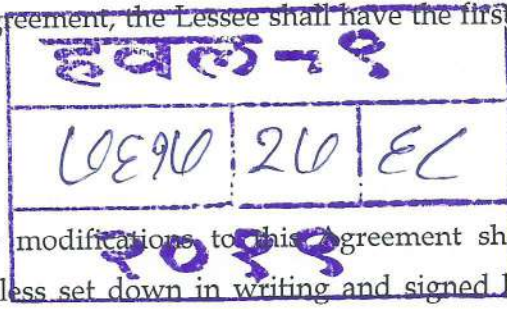 greement, the Lessee shall have the first
हवल-९
७६१७ २७ ६८
modifications to this Agreement sh
२०१९
less set down in writing and signed